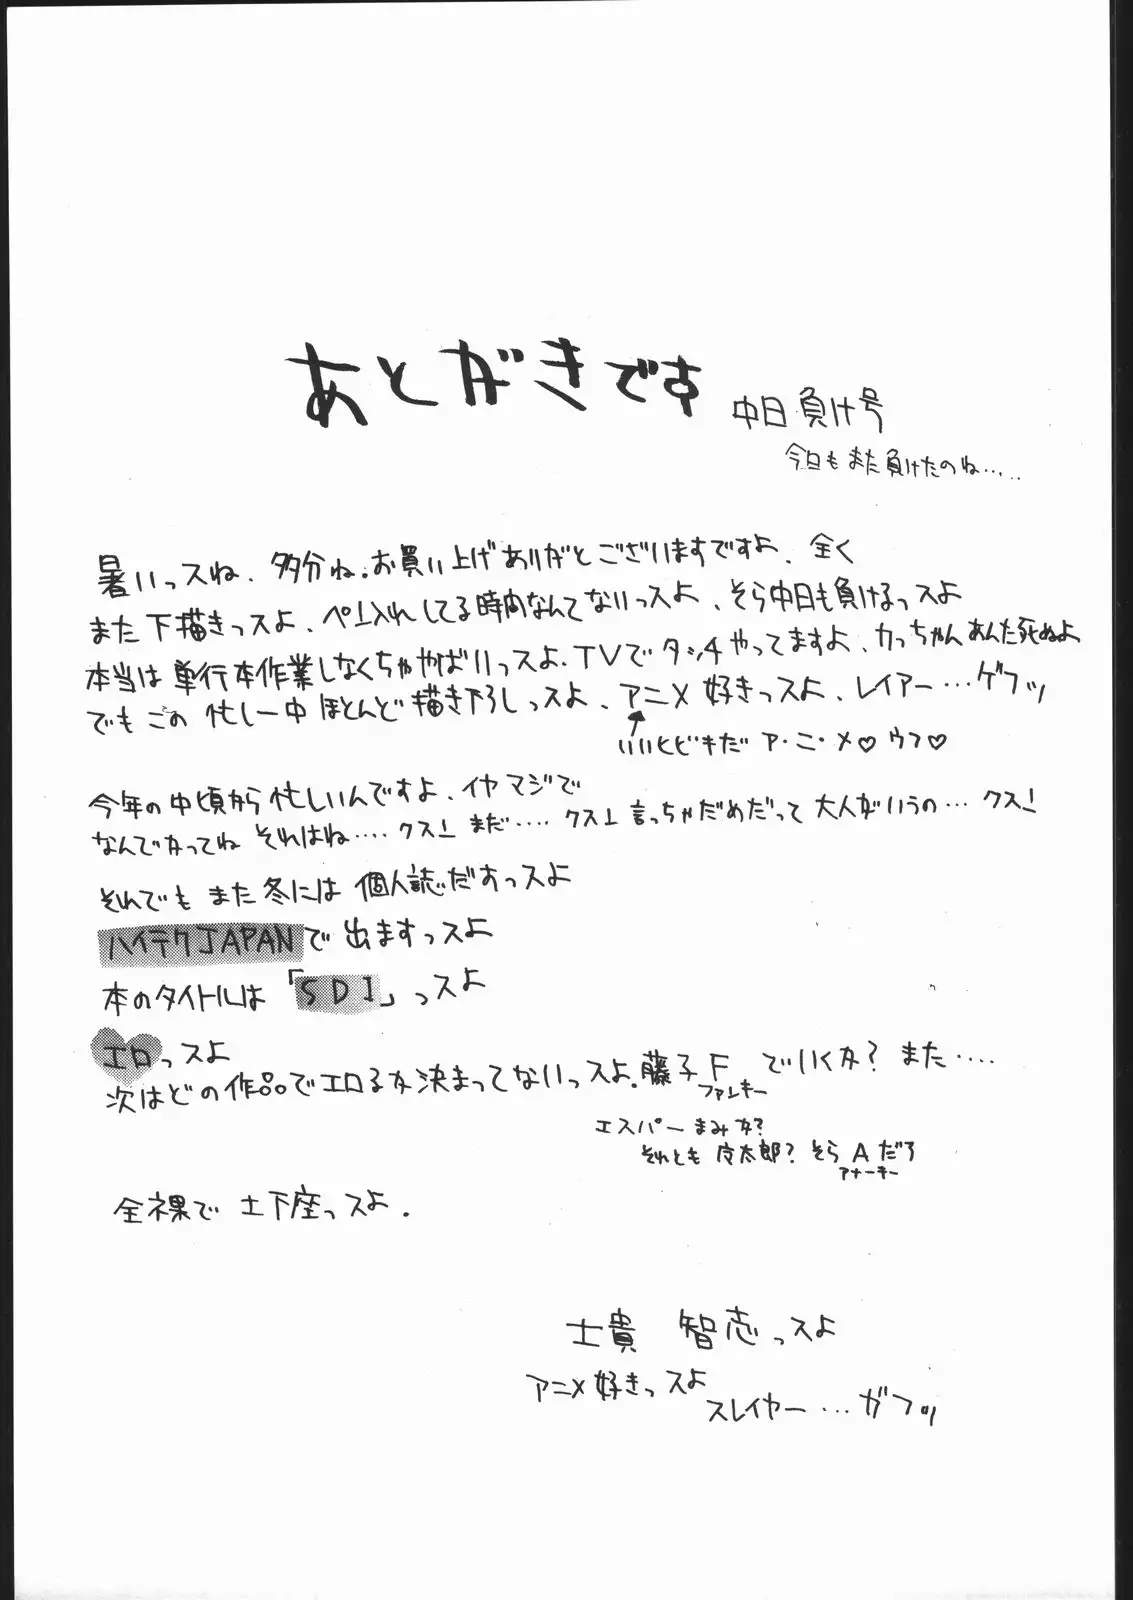 あとがきです
中日負け号
今日もまた負けたのね・・・・・
暑いっスね、多分ね。お買い上げありがとございますですよ、全く
また下描きっスよ、ペン入れしてる時間なんてないっスよ、そら中日も負けるっスよ
本当は単行本作業しなくちゃやばいっスよ。TVでタッチやってますよ、カっちゃんあんた死ぬよ
でもこの忙しー中ほとんど描き下ろしっスよ、アニメ好きっスよ、レイアー…ゲフッ
いいヒビキだ ア・ニ・メ♡ウフ♡
今年の中頃から忙しいんですよ、イヤマジで
なんでかってね それはね‥‥クスン まだ‥‥クスン 言っちゃだめだって大人がいうの…クスン
それでもまた冬には個人誌だすっスよ
ハイテクJAPANで出ますっスよ
本のタイトルは「SDI」っスよ
エロっスよ
次はどの作品でエロるか決まってないっスよ。藤子Fでいくか?また‥‥
ファンキー
エスパーまみか?
それとも 太郎?そらAだろ
アナーキー
全裸で土下座っスよ.
士貴 智志っスよ
アニメ好きっスよ
スレイヤー…ガフッ